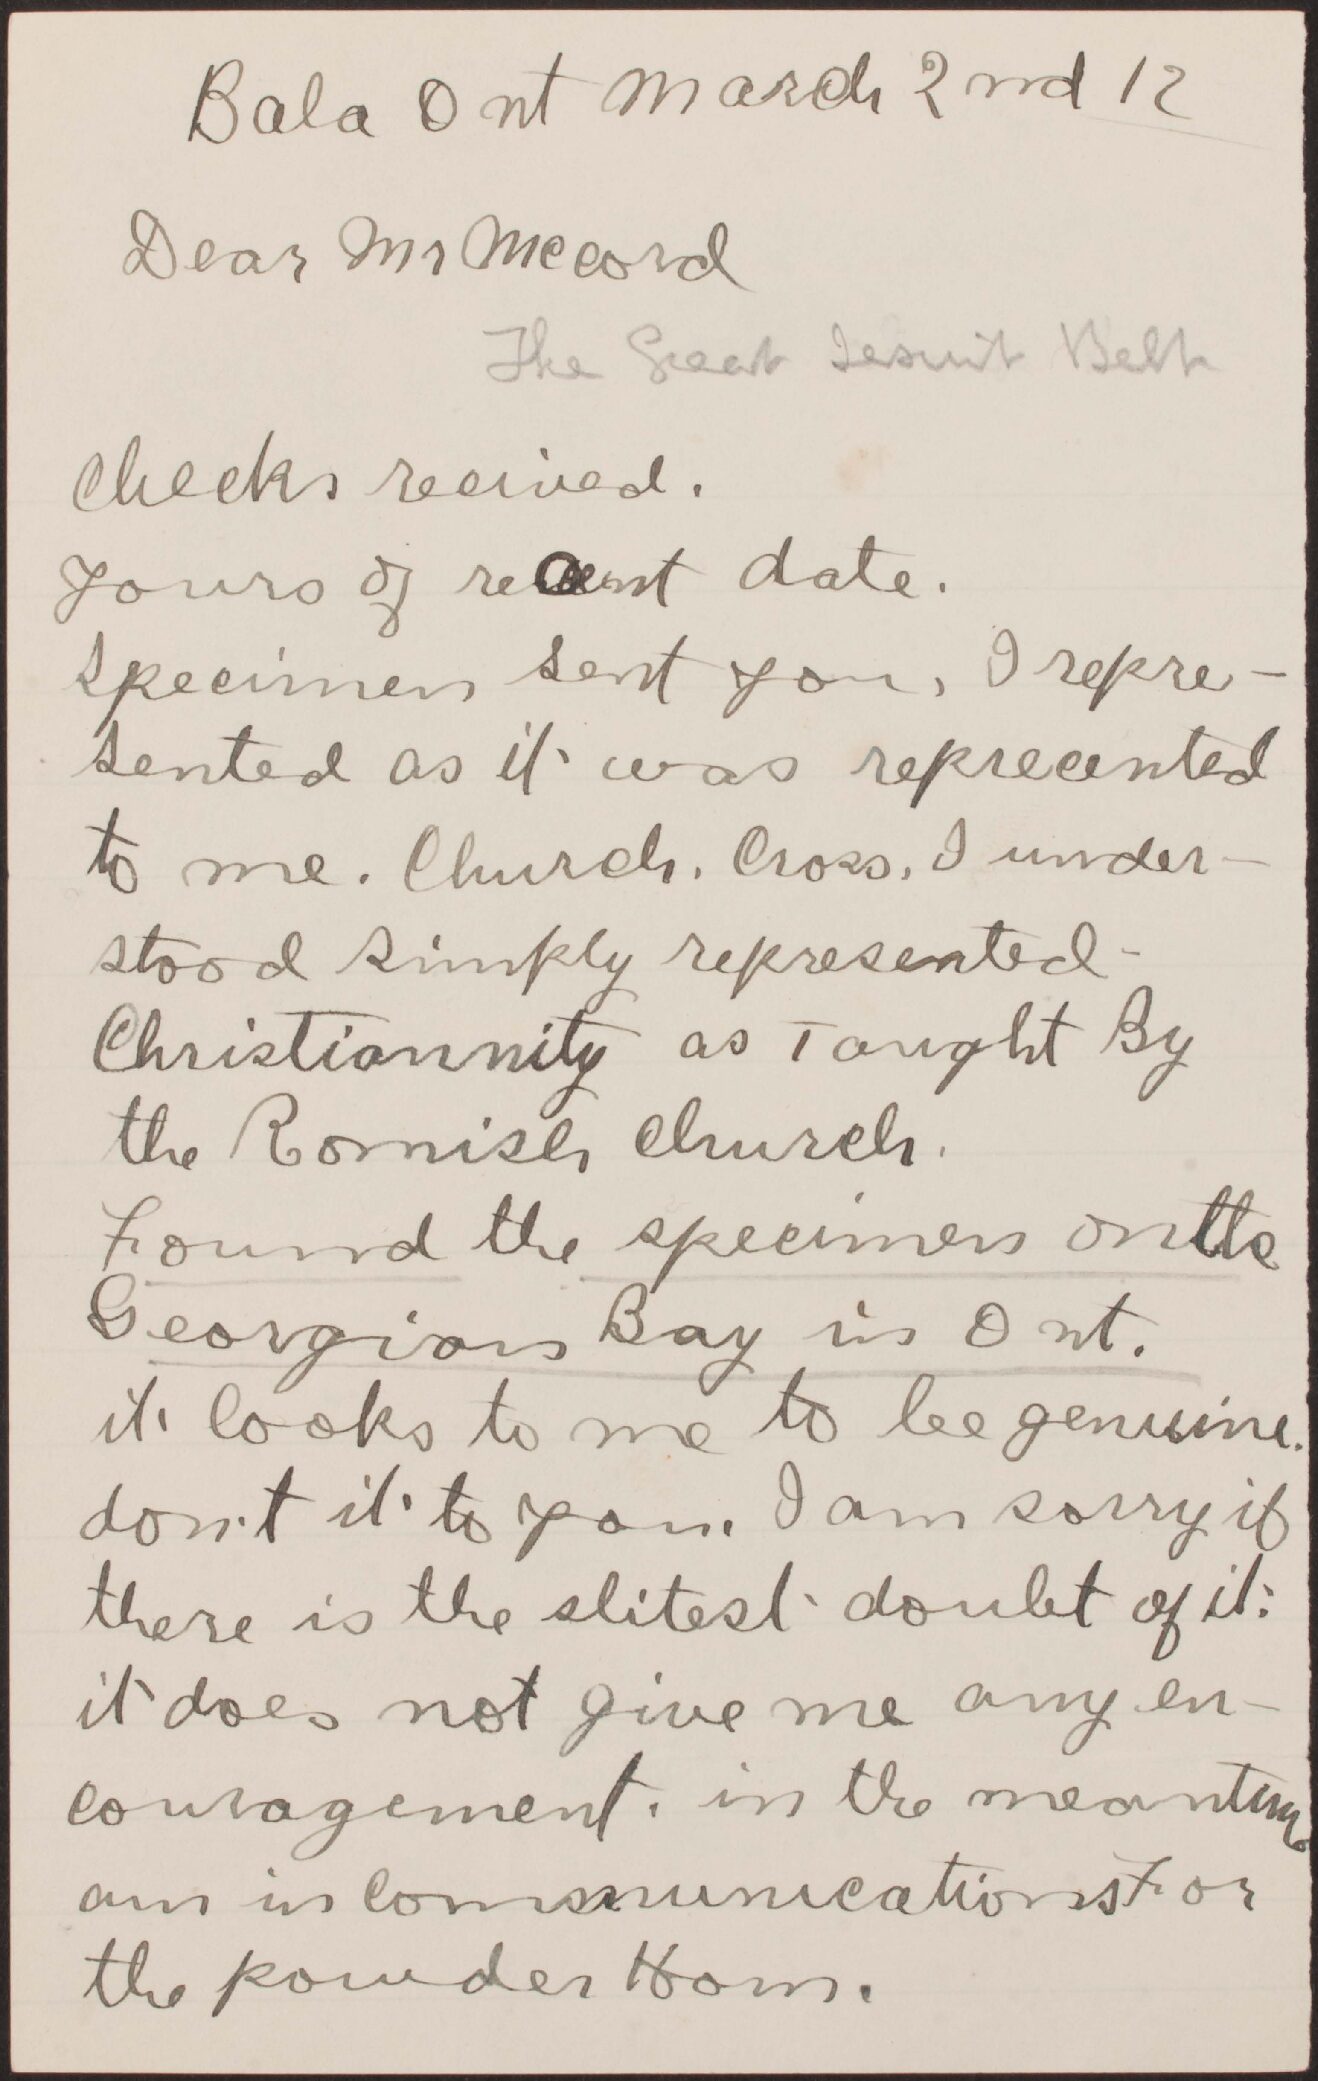 Bala Ont March 2nd 12
Dear Mr Mccord
The Great Jesuit Belt
Checks recived.
yours of recent date.
Specimen sent you, I repre-
sented as it was reprecented
to me. Church. Cross. I under-
stood simply represented
Christiannity as Taught By
the Romish Church.
Found the specimen on the
Georgian Bay in Ont.
it looks to me to be genuine.
don't it to you. I am sorry if
there is the slitest doubt of it.
it does not give me any en-
couragement. in the meantime
am in Communications For
the powder Horn.